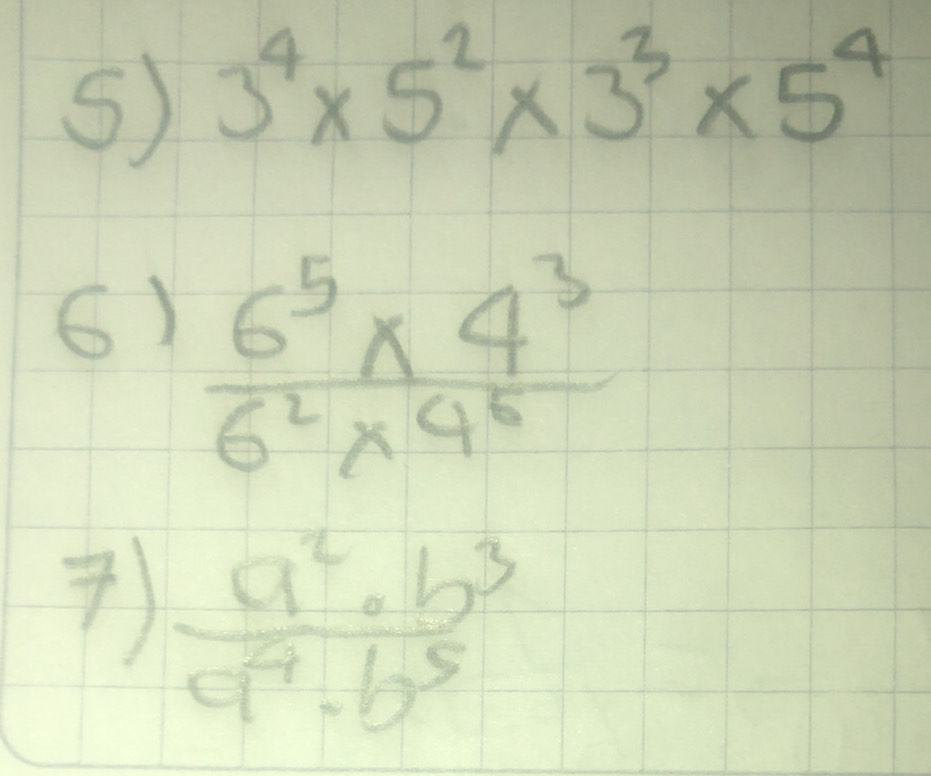 5) 3⁴ x 5² x 3³ x 5⁴
6) 6⁵ x 4³
6² x 4⁵
7) a² . b³
a⁴ . b⁵